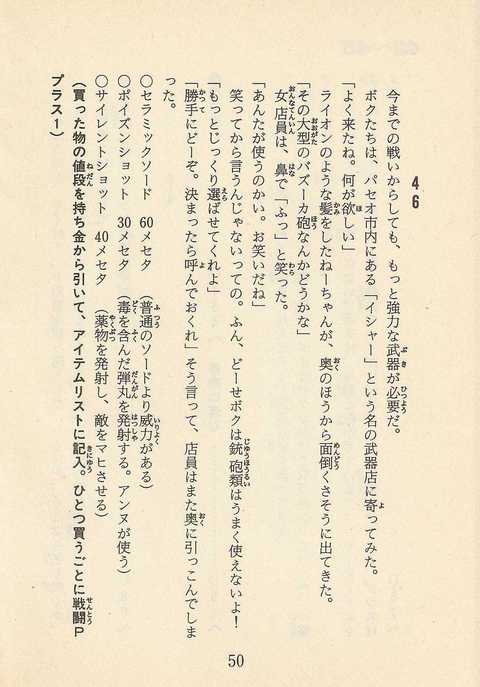 46
今までの戦いからしても、もっと強力な武器が必要だ。
ボクたちは、パセオ市内にある「イシャー」という名の武器店に寄ってみた。
「よく来たね。何が欲しい」
ライオンのような髪をしたねーちゃんが、奥のほうから面倒くさそうに出てきた。
「その大型のバズーカ砲なんかどうかな」
女店員は、鼻で「ふっ」と笑った。
「あんたが使うのかい。お笑いだね」
笑ってから言うんじゃないっての。ふん、どーせボクは銃砲類はうまく使えないよ！
「もっとじっくり選ばせてくれよ」
「勝手にどーぞ。決まったら呼んでおくれ」そう言って、店員はまた奥に引っこんでしま
った。
○セラミックソード　60メセタ　（普通のソードより威力がある）
○ポイズンショット　30メセタ　（毒を含んだ弾丸を発射する。アンヌが使う）
○サイレントショット　40メセタ　（薬物を発射し、敵をマヒさせる）
（買った物の値段を持ち金から引いて、アイテムリストに記入。ひとつ買うごとに戦闘P
プラス1）
50